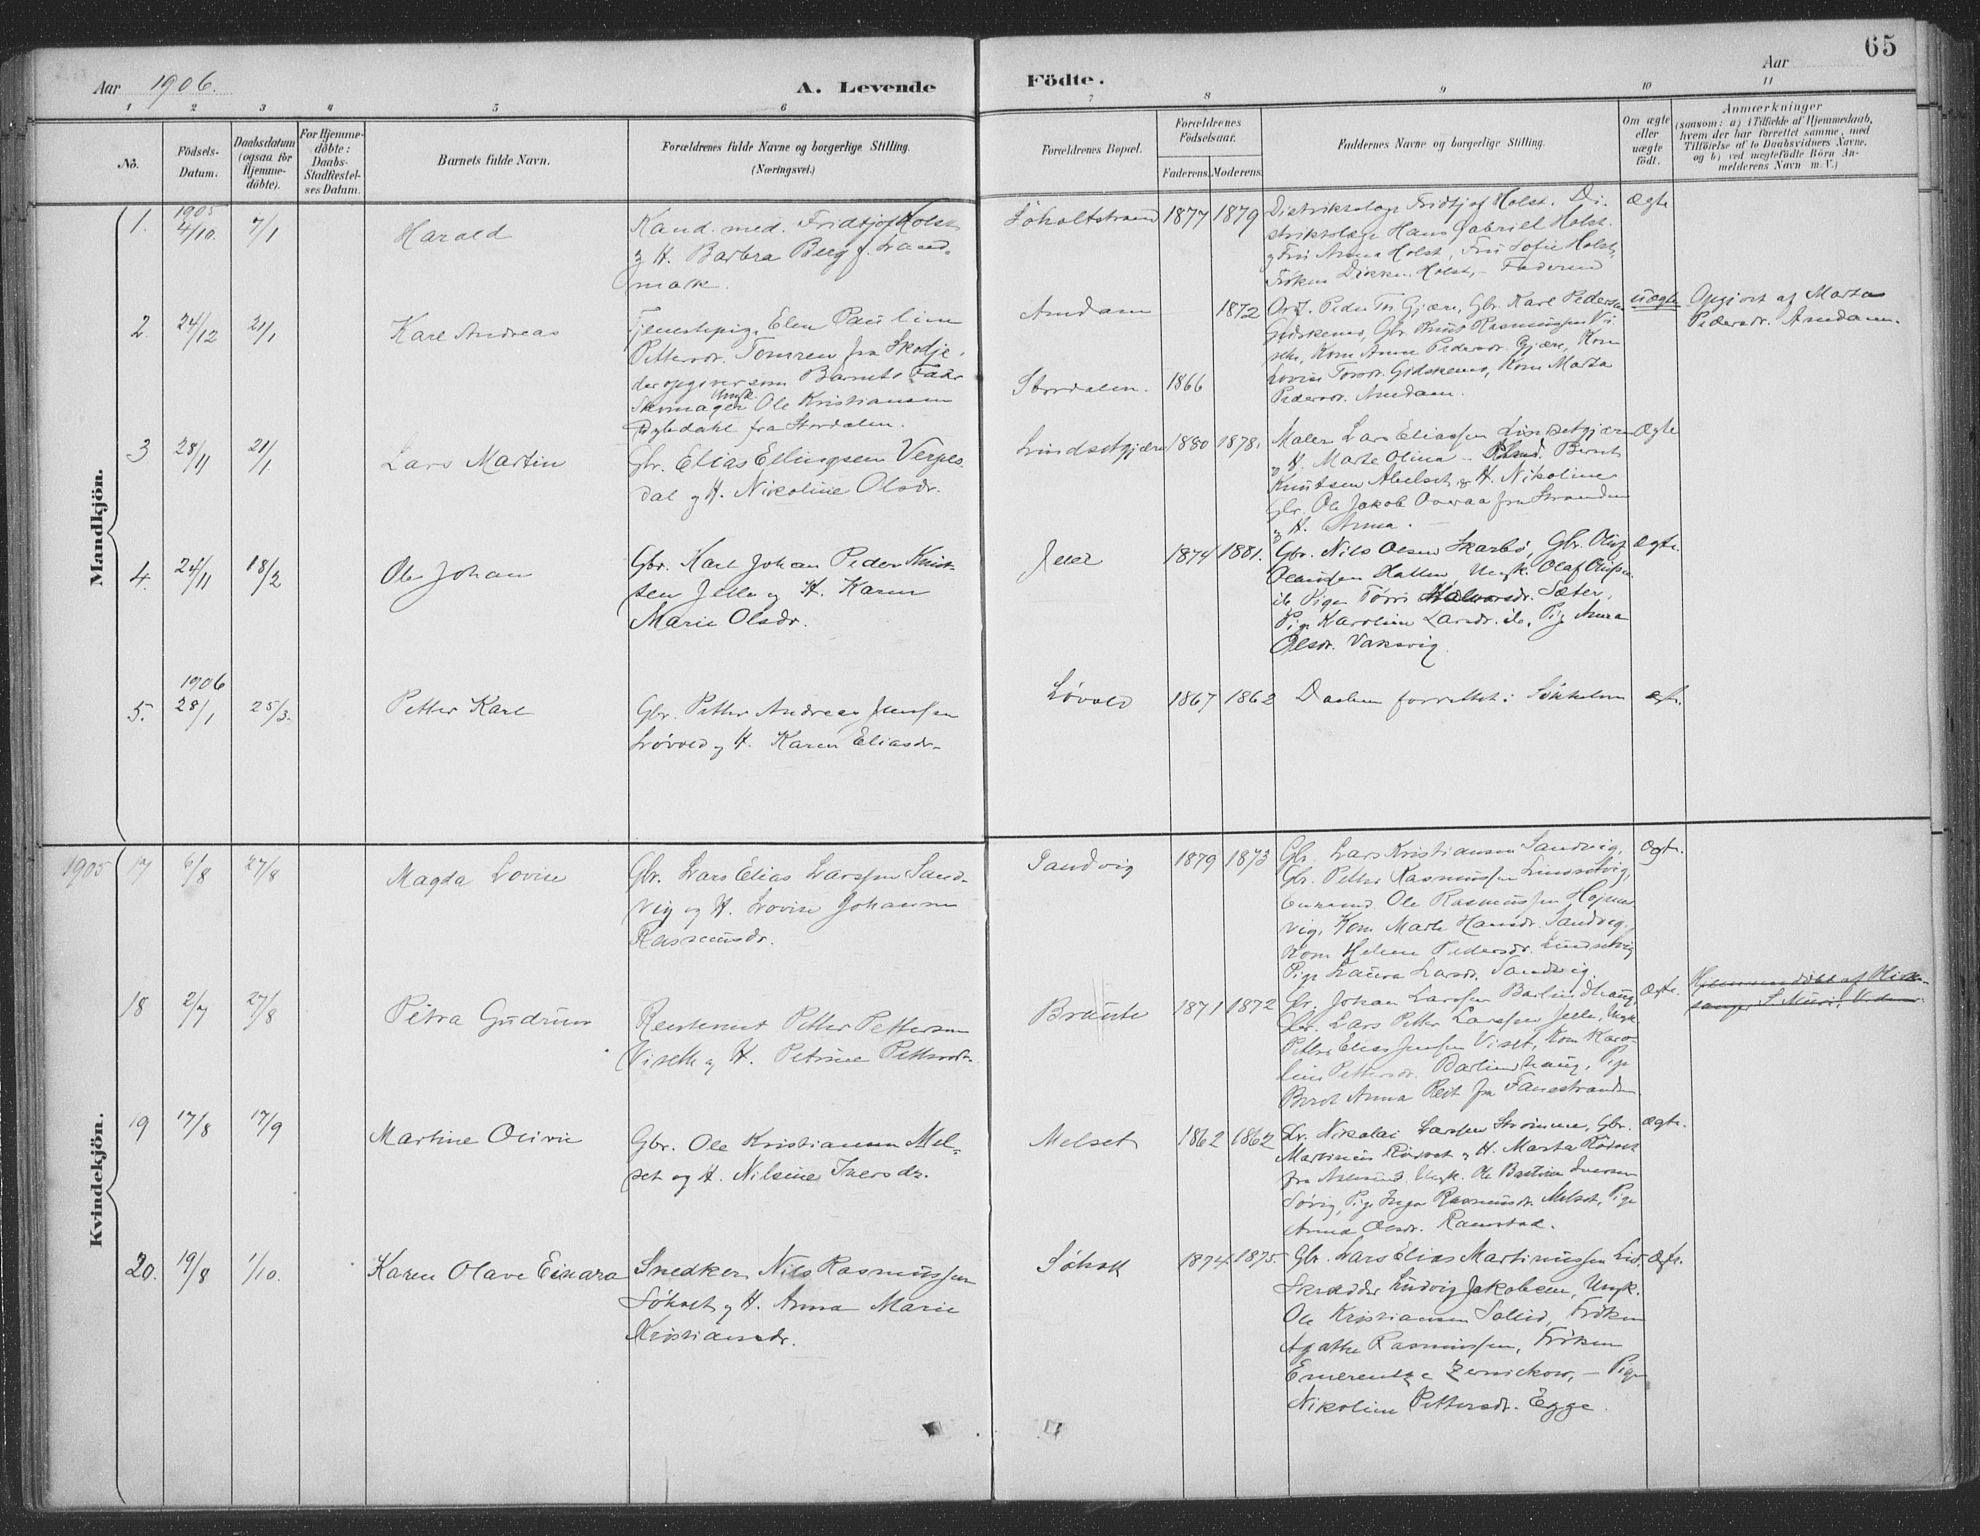 65
Aar 1906.
A. Levende
Födte.
Aar
1 2 3 4 5 6 7 8 9 10 11
No.
Födsels-
Datum.
Daabsdatum
(ogsaa for
Hjemme-
döbte).
For Hjemme-
döbte:
Daabs-
Stadfæstel-
ses Datum.
Barnets fulde Navn.
Forældrenes fulde Navne og borgerlige Stilling.
(Næringsvei.)
Forældrenes Bopæl.
Forældrenes
Födselsaar.
Faderens. Moderens.
Faddernes Navne og borgerlige Stilling.
Om ægte
eller
uægte
födt.
Anmærkninger
(saasom: a) i Tilfælde af Hjemmedaab,
hvem der har forrettet samme, med
Tilföielse af to Daabsvidners Navne,
og b) ved uægtefödte Börn An-
melderens Navn m. V.)
Mandkjön.
1.
1905
4/10. 7/1
Harald
Kand. med. Fridtjof Holst
og H. Barbra Berg f. Land-
mark.
Søholtstrand 1877 1879
Distriktslæge Fridtjof Holst. Di-
striktslæge Hans Gabriell Holst.
og Fru Anna Holst, Fru Sofie Holst,
Frøken Dikken Holst, - Faderen
ægte
2. 24/12 21/1
Karl Andreas
Tjenestepige Elen Pauline
Pettersdr. Tomren fra Skodje,
der opgiver som Barnets Fader
Ungk.
Skomager Ole Kristiansen
Dyledahl fra Stordalen.
Amdam 1872
Stordalen. 1866
Peder Gjære, Gbr. Karl Pedersen
Gidskemo, Gbr. Knut Rasmussen Vi-
seth, Kone Anne Pedersdr. Gjære, Kone
Lovise Gidskemo, Kone Marta
Pedersdr. Amdam.
uægte
Opgjort af Marta
Pedersdr. Amdam.
3 28/11 21/1
Lars Martin
Gbr. Elias Ellingsen Verpes-
dal og H. Nikoline Olsdr.
Lindsetgjære 1880 1878.
Maler Lars Eliassen Lindsetgjære
og H. Marte Olina - Bernt
Knutsen Abelset og H. Nikoline
Gbr. Ole Jakob Overaa fra Stranden
og H. Anna. -
ægte
4. 24/11 18/2
Ole Johan
Gbr. Karl Johan Peder Knut-
sen Jelle og H. Karen
Marie Olsdr.
Jelle 1874 1881.
Gbr. Nils Olsen Skarbø, Gbr. Oluf
Hatlen, Ungk. Olaf
ib. Pige Sæter,
Pige Karoline Larsdr. ib, Pige Anna
Olsdr. Vaksvig.
ægte.
5.
1906
28/1 25/3.
Petter Karl
Gbr. Petter Andreas Jensen
Løvold og H. Karen Eliasdr.
Løvold 1867 1862
Daaben forrettet i Sykkelven
ægte.
Kvindekjön.
1905 17 6/8 27/8
Magda Lovise
Gbr. Lars Elias Larssen Sand-
vig og H. Lovise Johanna
Rasmusdr.
Sandvig 1879 1873
Gbr. Lars Kristiansen Sandvig,
Gbr. Petter Rasmussen Lindsetvig,
Enkemd. Ole Rasmussen Højsæ-
vig, Kone Marte Hansdr. Sandvig,
Kone Helene Pedersdr. Lindsetvig
Pige Laura Larsdr. Sandvig.
ægte.
18 2/7 27/8
Petra Gudrun
Rentenist Petter Pettersen
Viseth og H. Petrine Pettersdr.
Braute 1871 1872
Gbr. Johan Larssen Barlindhaug,
Gbr. Lars Petter Larssen Jelle, Ungk.
Petter Elias Jensen Viset, Kone Karo-
line Pettersdr. Barlindhaug, Pige
Berte Anna Reit fra Fanestranden
ægte.
Hjemmedöbt af Kirke-
sanger
19 17/8 17/9
Martine Olivie
Gbr. Ole Kristiansen Mel-
set og H. Nilsine Iversdr.
Melset 1862 1862
Nikolai Larsen Strømme, Gbr.
Martinus Rødset og H. Marta Rødset
fra Aalesund Ungk. Ole Bastian Iversen
Sørvig, Pige Inga Rasmusdr. Melset, Pige
Anna Olsdr. Ramstad.
ægte.
20. 19/8 1/10.
Karen Olave Einara
Snedker Nils Rasmussen
Søholt og H. Anna Marie
Kristiansdr.
Søholt 1874. 1875.
Gbr. Lars Elias Martinussen Lid,
Skrædder Ludvig Jakobsen, Ungk.
Ole Kristiansen Sollid, Frøken
Agathe Rasmussen, Frøken
Emerentze Zernickow, - Pige
Nikoline Pettersdr. Egge.
ægte.